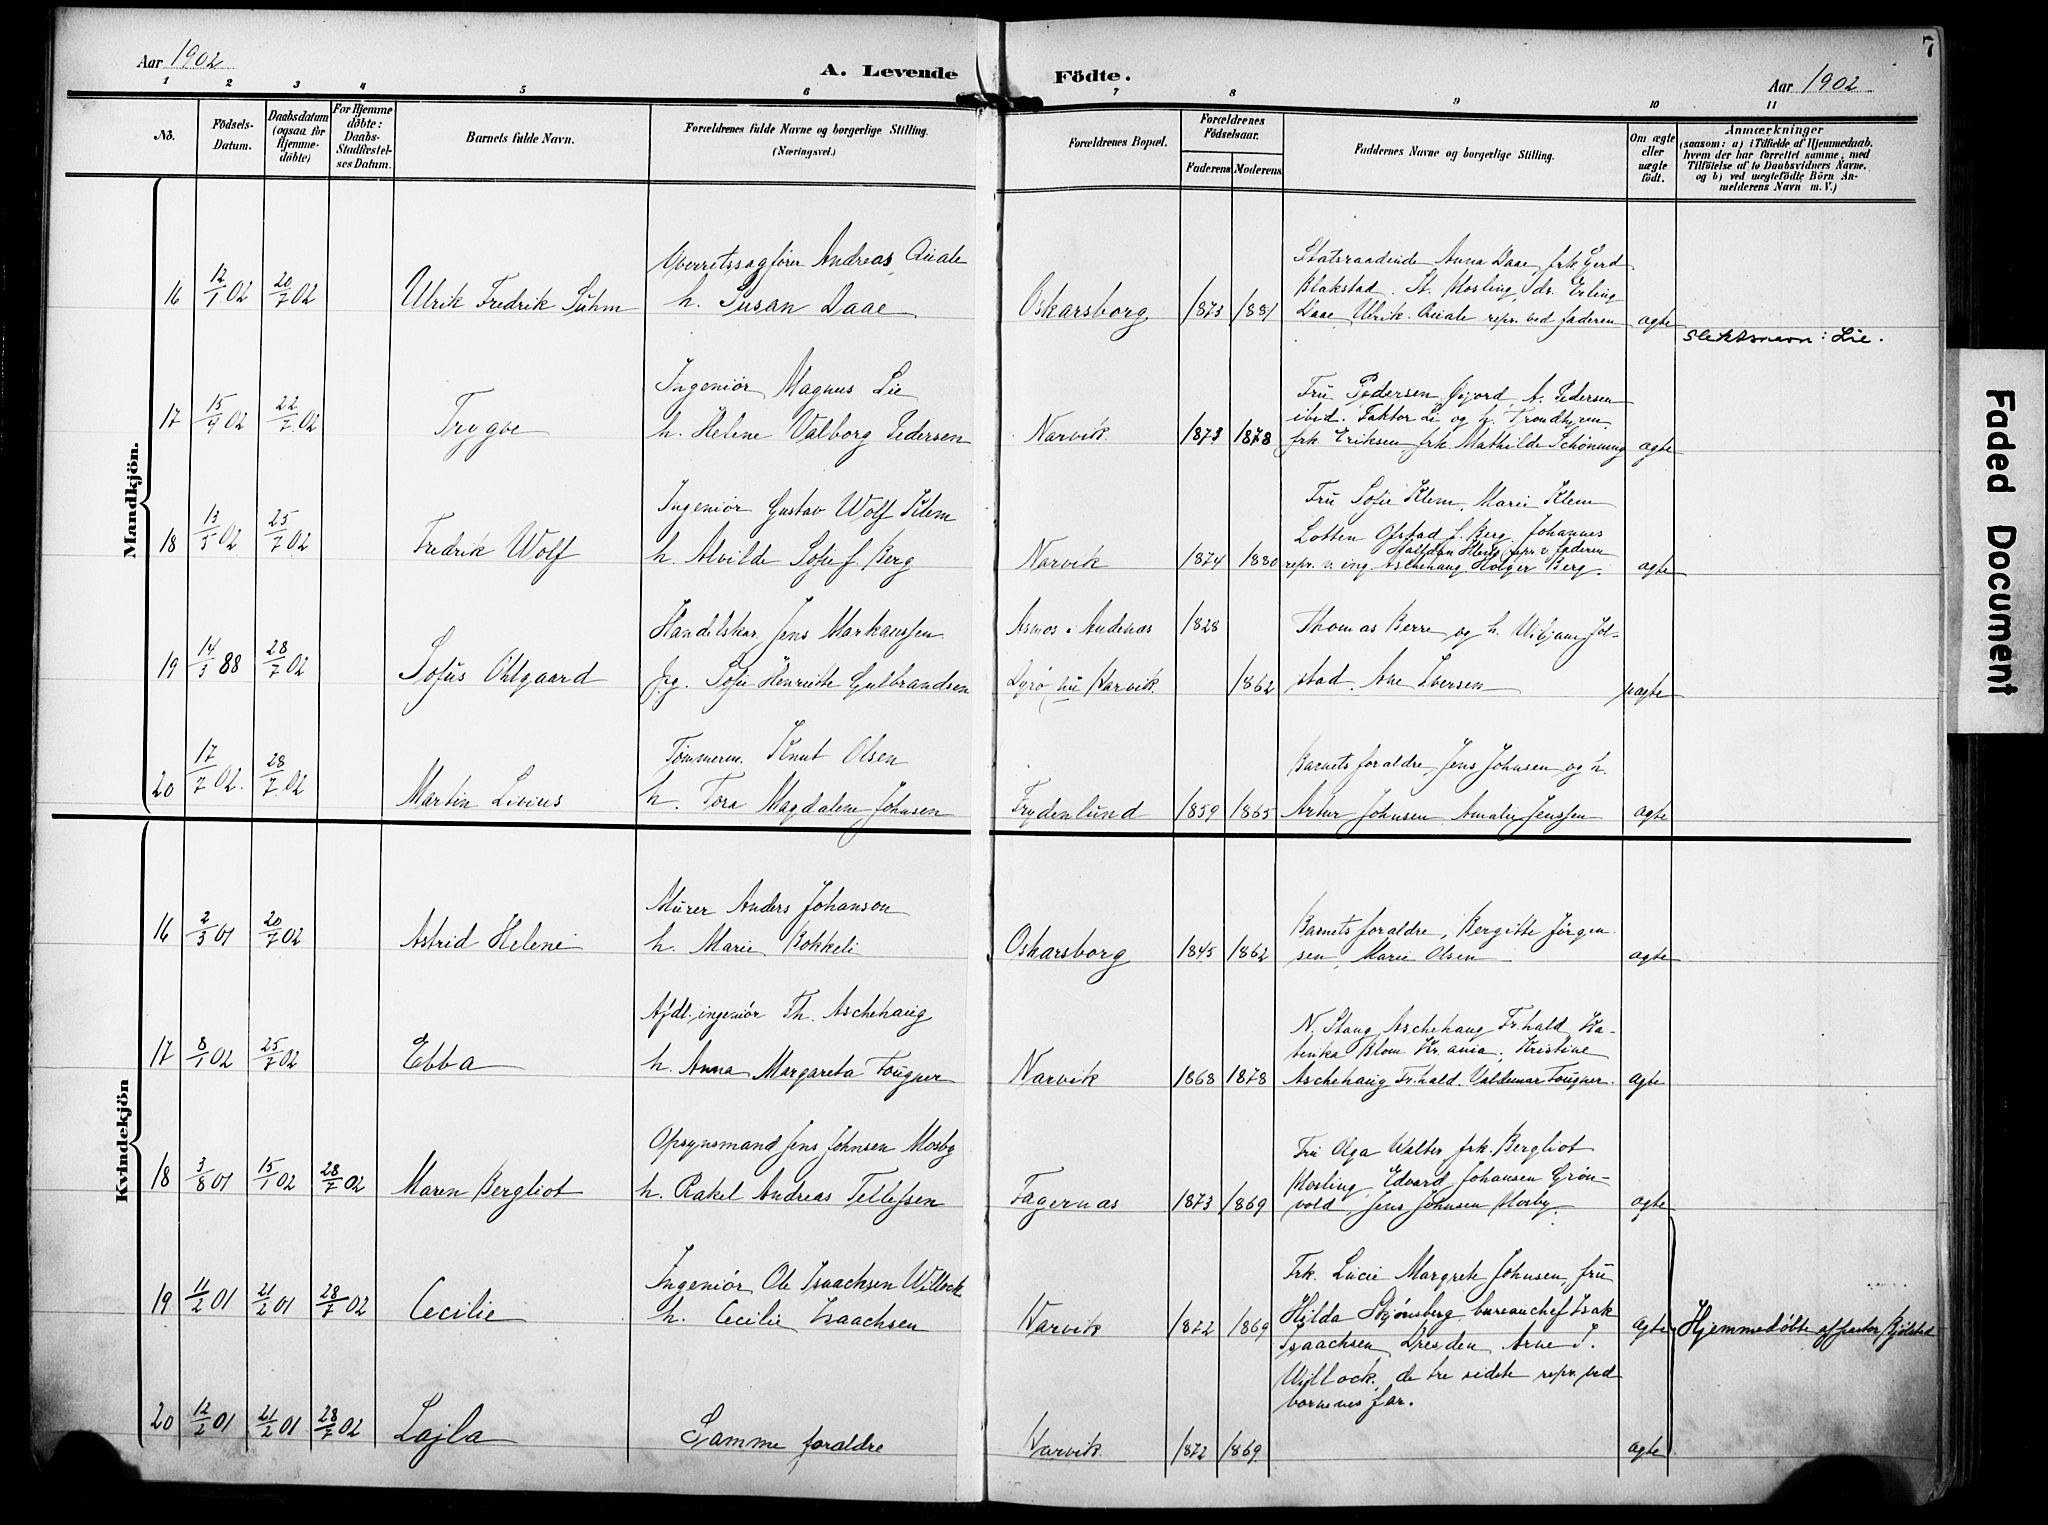 7
Aar 1902
A. Levende Födte.
Aar 1902
1 2 3 4 5 6 7 8 9 10 11
No.
Födsels-
Datum.
Daabsdatum
(ogsaa for
Hjemme-
döbte)
For Hjemme
döbte:
Daabs-
Stadfæstel-
ses Datum.
Barnets fulde Navn.
Forældrenes fulde Navne og borgerlige Stilling.
(Næringsvei.)
Forældrenes Bopæl.
Forældrenes
Födselsaar.
Faderens Moderens
Faddernes Navne og borgerlige Stilling.
Om ægte
eller
uægte
födt.
Anmærkninger
(saasom: a) i Tilfælde af Hjemmedaab.
hvem der har forrettet samme, med
Tilföielse af to Daabsvidners Navne.
og b) ved uægtefödte Börn An-
melderens Navn m. V.)
Mandkjön.
16 12/1 02 20/7 02 Ulrik Fredrik Suhm
Overretssagfører Andreas Quale
h. Susan Daae
Oskarsborg 1873 1881
Statsraadinde Anna Daae, frk Gerd
Blakstad. St. Kosling, dr. Erling
Daae, Ulrik Quale repr. ved faderen
ægte
Slektsnavn: Lie.
17 15/4 02 22/7 02 Trygve
Ingeniør Magnus Lie
h. Helene Valborg Pedersen
Narvik 1873 1878
Fru Pedersen Gjord, A. Pedersen
ibid. Faktor Li og h. Trondhjem
frk Eriksen, frk. Mathilde Schønning
ægte
18 13/5 02 25/7 02 Fredrik Wolf
Ingeniør Gustav Wolf Klem
h. Alvilde Sofie f. Berg
Narvik 1874 1880
Fru Sofie Klem, Marie Klem
Lotten Ofstad f. Berg. Johannes
Halfdan Klem repr. v. faderen
repr. v. ing. Aschehaug Holger Berg.
ægte
19 14/5 88 28/7 02 Sofus Ohlgaard
Handelskar Jens Markussen
Pig. Sofie Henriette Gulbrandsen
Asmos i Andenæs 1828
Dyrø nu Narvik. 1862
Thomas Berre og h. Jol-
stad. Ane Iversen
uægte
20 17/7 02. 28/7 02 Martin Livius
Tømmerm. Knut Olsen
h. Tora Magdalene Johnsen
Frydenlund 1859 1865
Barnets forældre, Jens Johnsen og h.
Artur Johnsen, Amalie Jenssen
ægte
Kvindekjön
16 2/3 01 20/7 02 Astrid Helene
Murer Anders Johanson
h. Marie Bokkeli
Oskarsborg 1845 1862
Barnets forældre, Bergitte Jørgen
sen, Marie Olsen
ægte
17 8/1 02 25/7 02 Ebba
Afdl. ingeniør Th. Aschehaug
h. Anna Margareta Fougner
Narvik 1868 1878
N. Stang Aschehaug Fr.hald, Ka-
trinka Blom Kr.ania, Kristine
Aschehaug Fr.hald. Valdemar Fougner.
ægte
18 3/8 01 15/1 02 28/7 02 Maren Bergliot
Opsynsmand Jens Johnsen Mosby
h. Rakel Andreas Tellefsen
Fagernæs 1873 1869
Fru Olga Walter, frk. Bergliot
Kosling, Edvard Johansen Grøn-
vold, Jens Johnsen Mosby.
ægte
19 11/2 01 21/2 01 28/7 02 Cecilie
Ingeniør Ole Isaachsen Willock
h. Cecilie Isaachsen
Narvik 1872 1869
Frk. Lucie Margrete Johnsen, fru
Hilda Skjønsberg, bureauchef Isak
Isaachsen Dresden, Arne I.
Willock, de tre sidste repr. ved
børnenes far.
ægte
Hjemmedøbte af pastor Kjølstad
20 12/2 01 21/2 01 28/7 02 Lajla
Samme forældre
Narvik. 1872 1869.
ægte
Faded Document